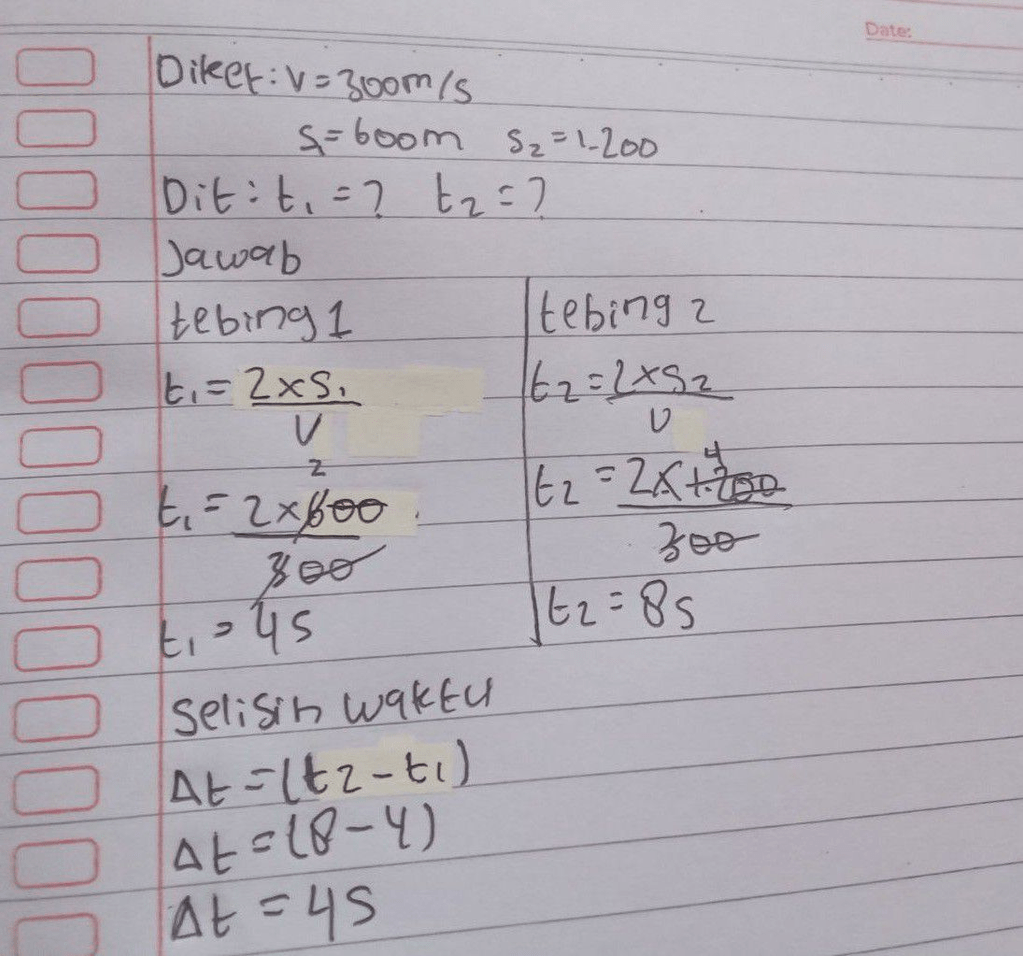 Date:
Diket: v = 300 m/s
S₁ = 600 m S₂ = 1.200
Dit: t₁ = ? t₂ = ?
Jawab
tebing 1
t₁ = 2 x S₁
V
2
t₁ = 2 x 600
300
t₁ = 4 s
tebing 2
t2 = 2 x S2
V
4
t2 = 2 x 1.200
300
t2 = 8 s
Selisih waktu
Δt = (t2 - t₁)
Δt = (8 - 4)
Δt = 4 s